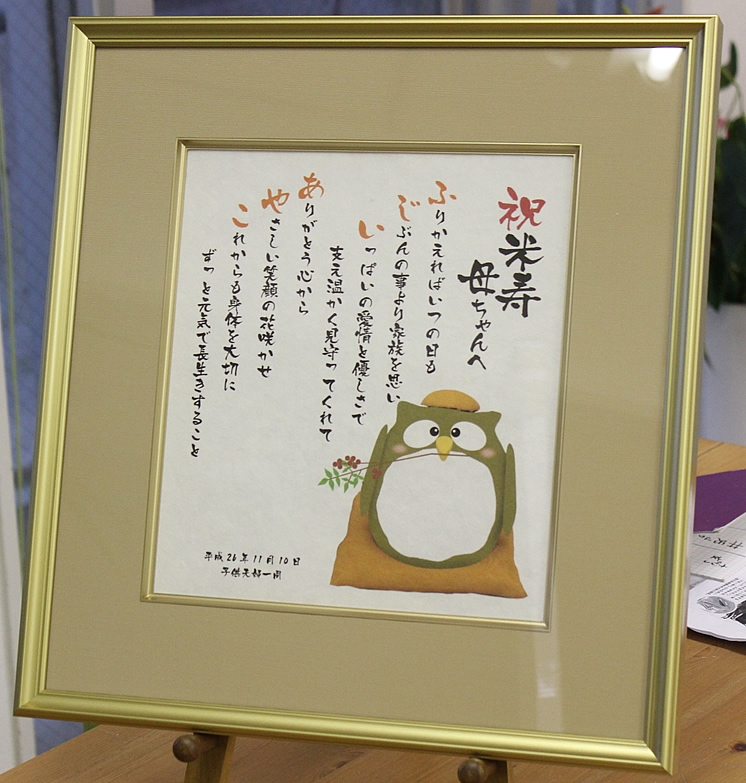 祝米寿
母ちゃんへ
ふりかえればいつの日も
じぶんの事より家族を思い
いっぱいの愛情と優しさで
支え温かく見守ってくれて
ありがとう心から
やさしい笑顔の花咲かせ
これからも身体を大切に
ずっと元気で長生きすること
平成26年11月10日
子供夫婦一同